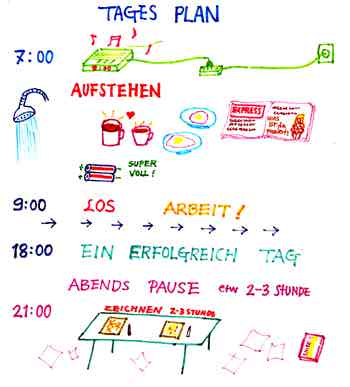 TAGES PLAN
7:00
AUFSTEHEN
EXPRESS
SUPER
VOLL!
9:00 LOS ARBEIT!
18:00 EIN ERFOLGREICH TAG
ABENDS PAUSE etw 2-3 STUNDE
21:00 ZEICHNEN 2-3 STUNDE